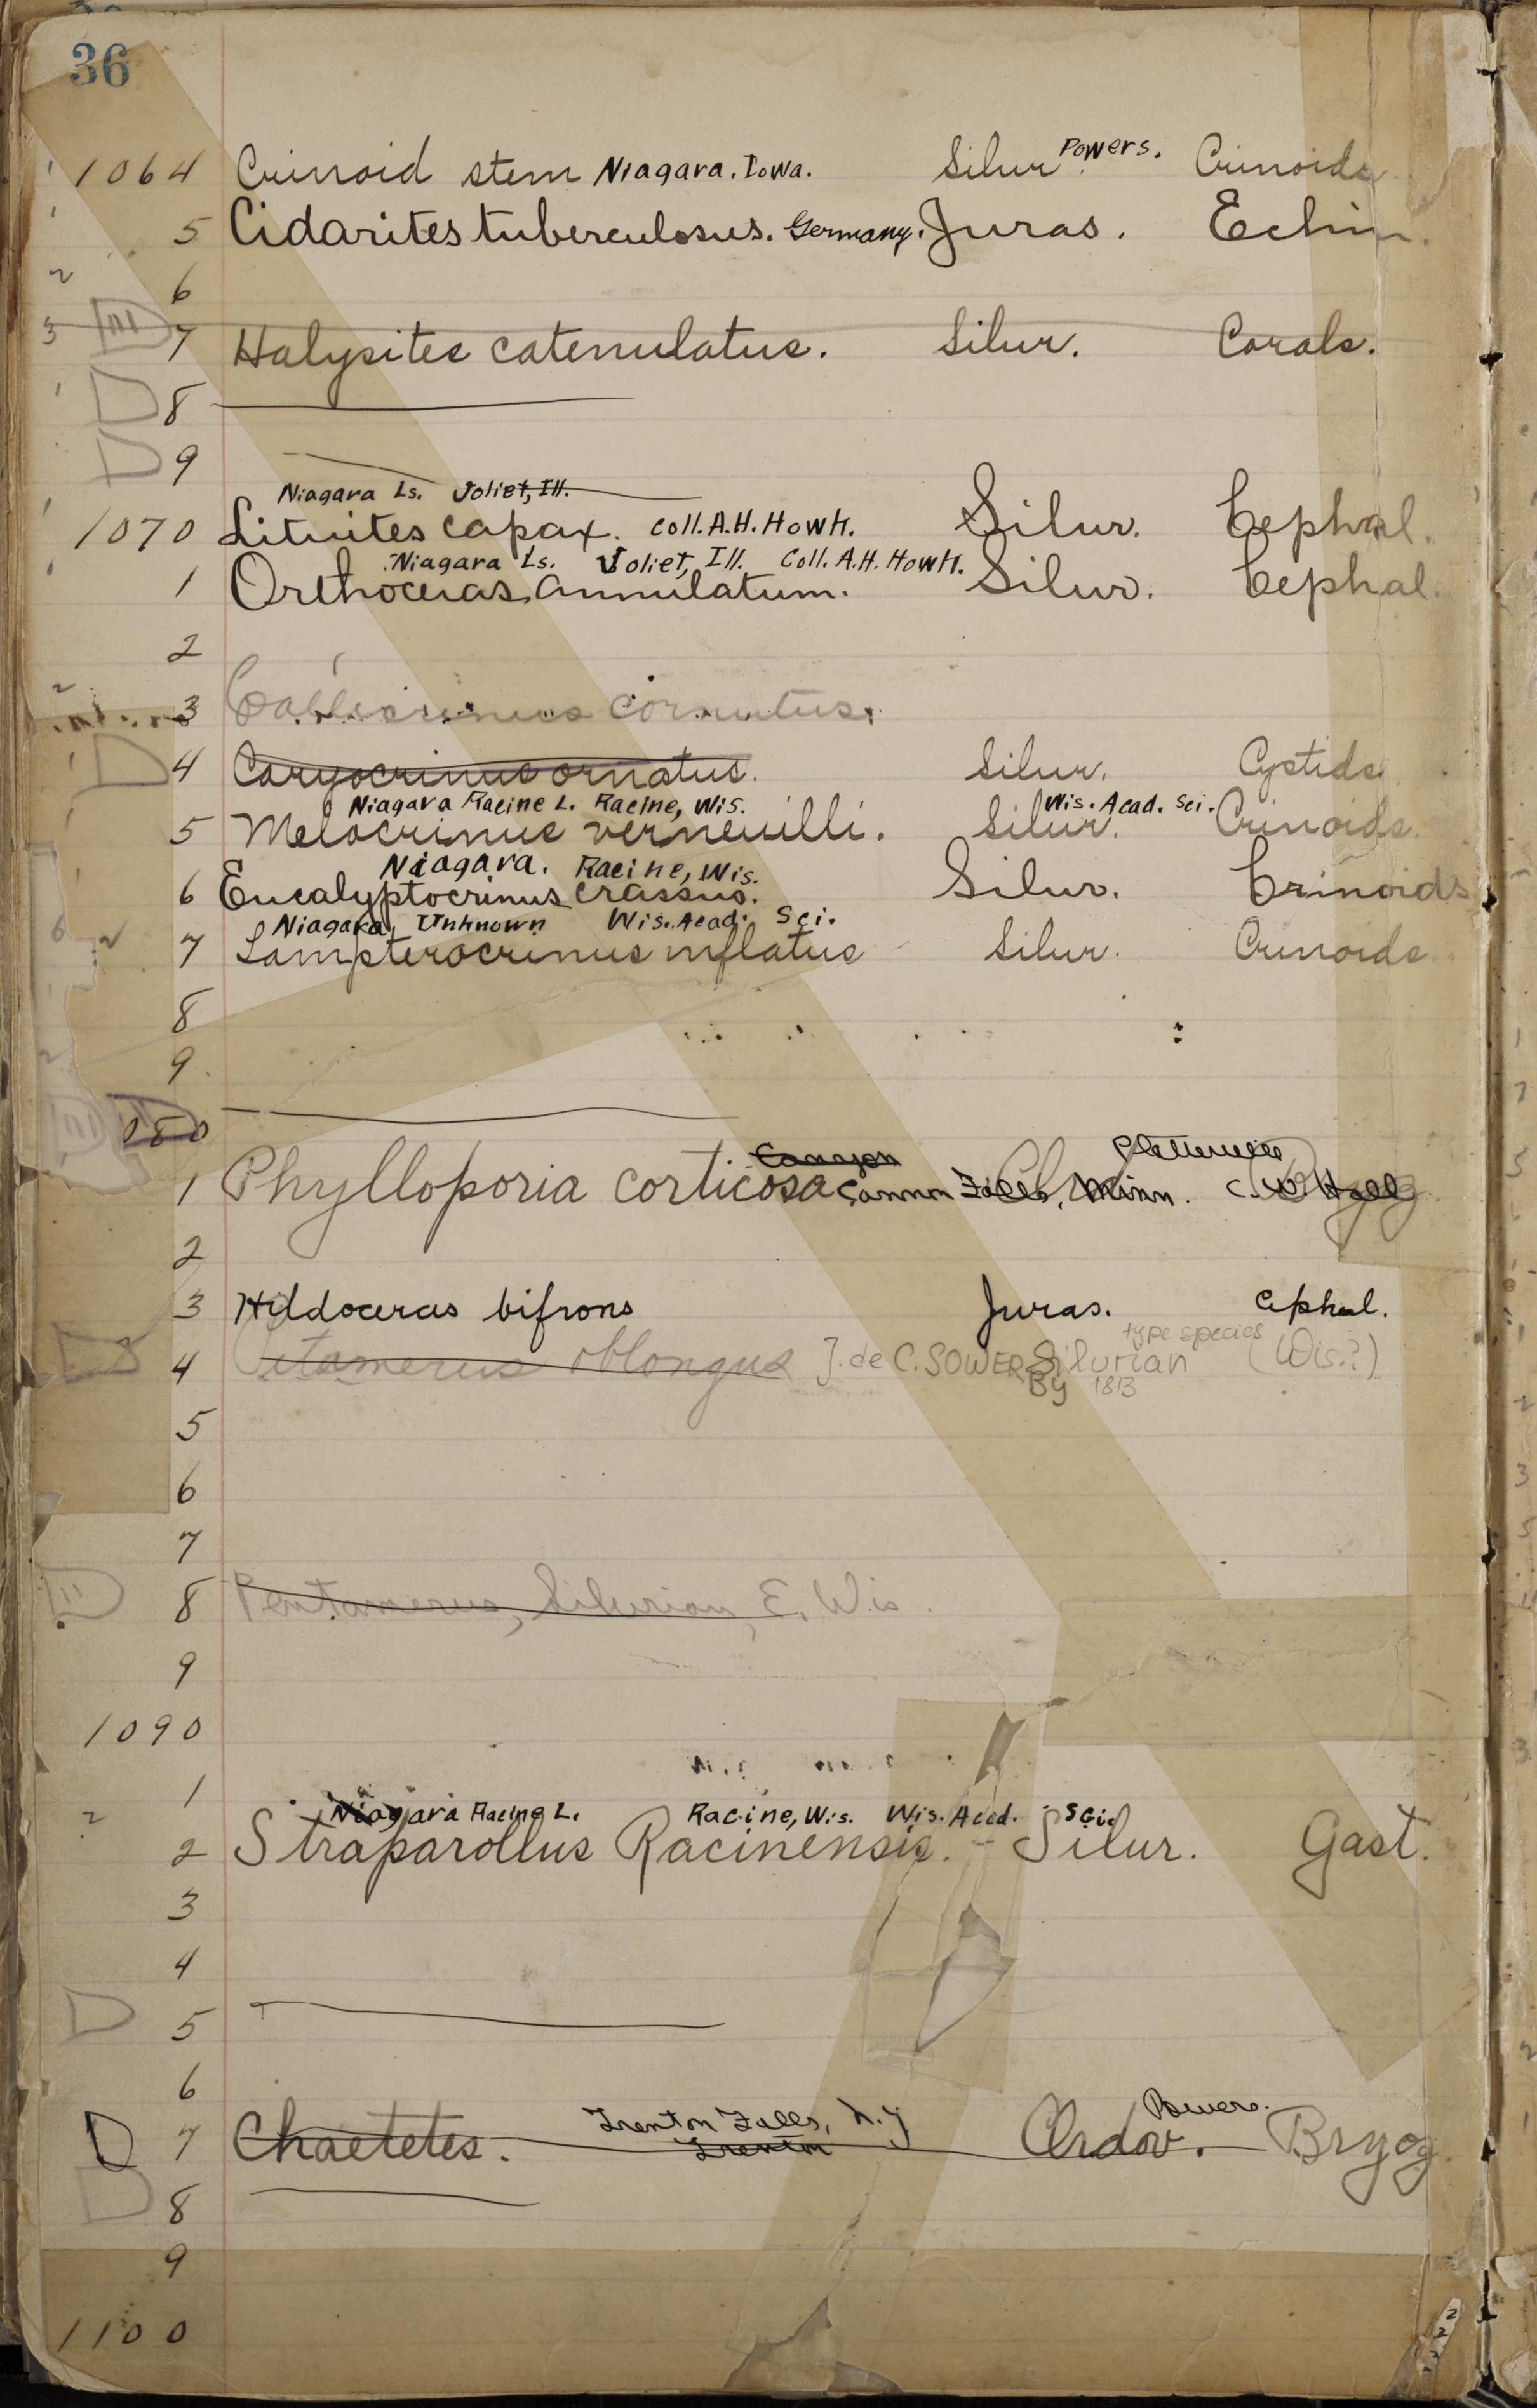 36
1064 Crinoid stem Niagara. Iowa. Silur. Powers. Crinoids
5 Cidarites tuberculosus. Germany. Juras. Echin.
6
7 Halysites catenulatus. Silur. Corals.
8
9
Niagara Ls. Joliet, Ill.
1070 Lituites capax. Coll. A.H. Howh. Silur. Cephal.
Niagara Ls. Joliet, Ill. Coll. A.H. Howh.
1 Orthoceras annulatum. Silur. Cephal.
2
3 cornutus.
4 Caryocrinus ornatus. Silur. Cystids
Niagara Racine L. Racine, Wis. Wis. Acad. Sci.
5 Melocrinus verneuilli. Silur. Crinoids.
Niagara. Racine, Wis.
6 Eucalyptocrinus crassus. Silur. Crinoids
Niagara, Unknown Wis. Acad. Sci.
7 Lampterocrinus inflatus Silur. Crinoids.
8
9
1080
Platteville
1 Phylloporia corticosa Cannon Falls, Minn. C. W. Hall
2
3 Hildoceras bifrons Juras. Cephal.
type species
4 Petamerus oblongus J. de C. SOWERBy 1813 Silurian (Wis.?)
5
6
7
8 Pentamerus, Silurian, E. Wis.
9
1090
1
Niagara Racine L. Racine, Wis. Wis. Acad. Sci.
2 Straparollus Racinensis. - Silur. Gast.
3
4
5
6
Trenton Falls, N.Y Powers.
7 Chaetetes. Trenton Ordov. Bryoz.
8
9
1100